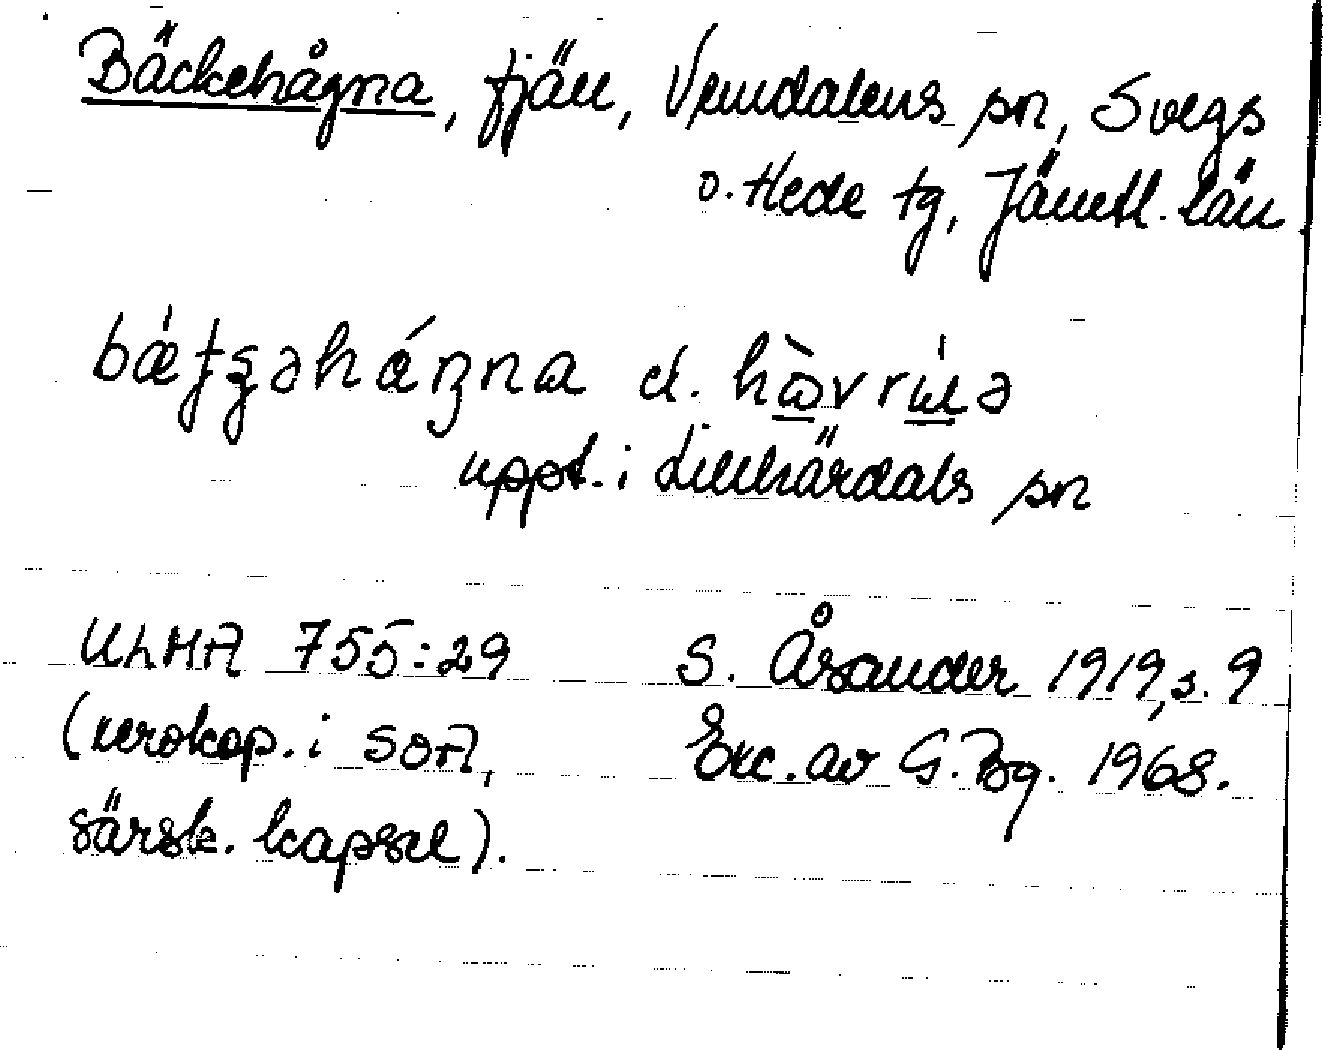 Bäckehågna, fjäll, Vemdalens sn, Svegs
o. Hede tg, Jämtl. län
d.
uppt. i Lillhärdals sn
ULMA 755:29 S. Åsander 1919, s. 9
(xerokop. i SOFI, Exc. av G. Bg. 1968.
särsk. kapsel).